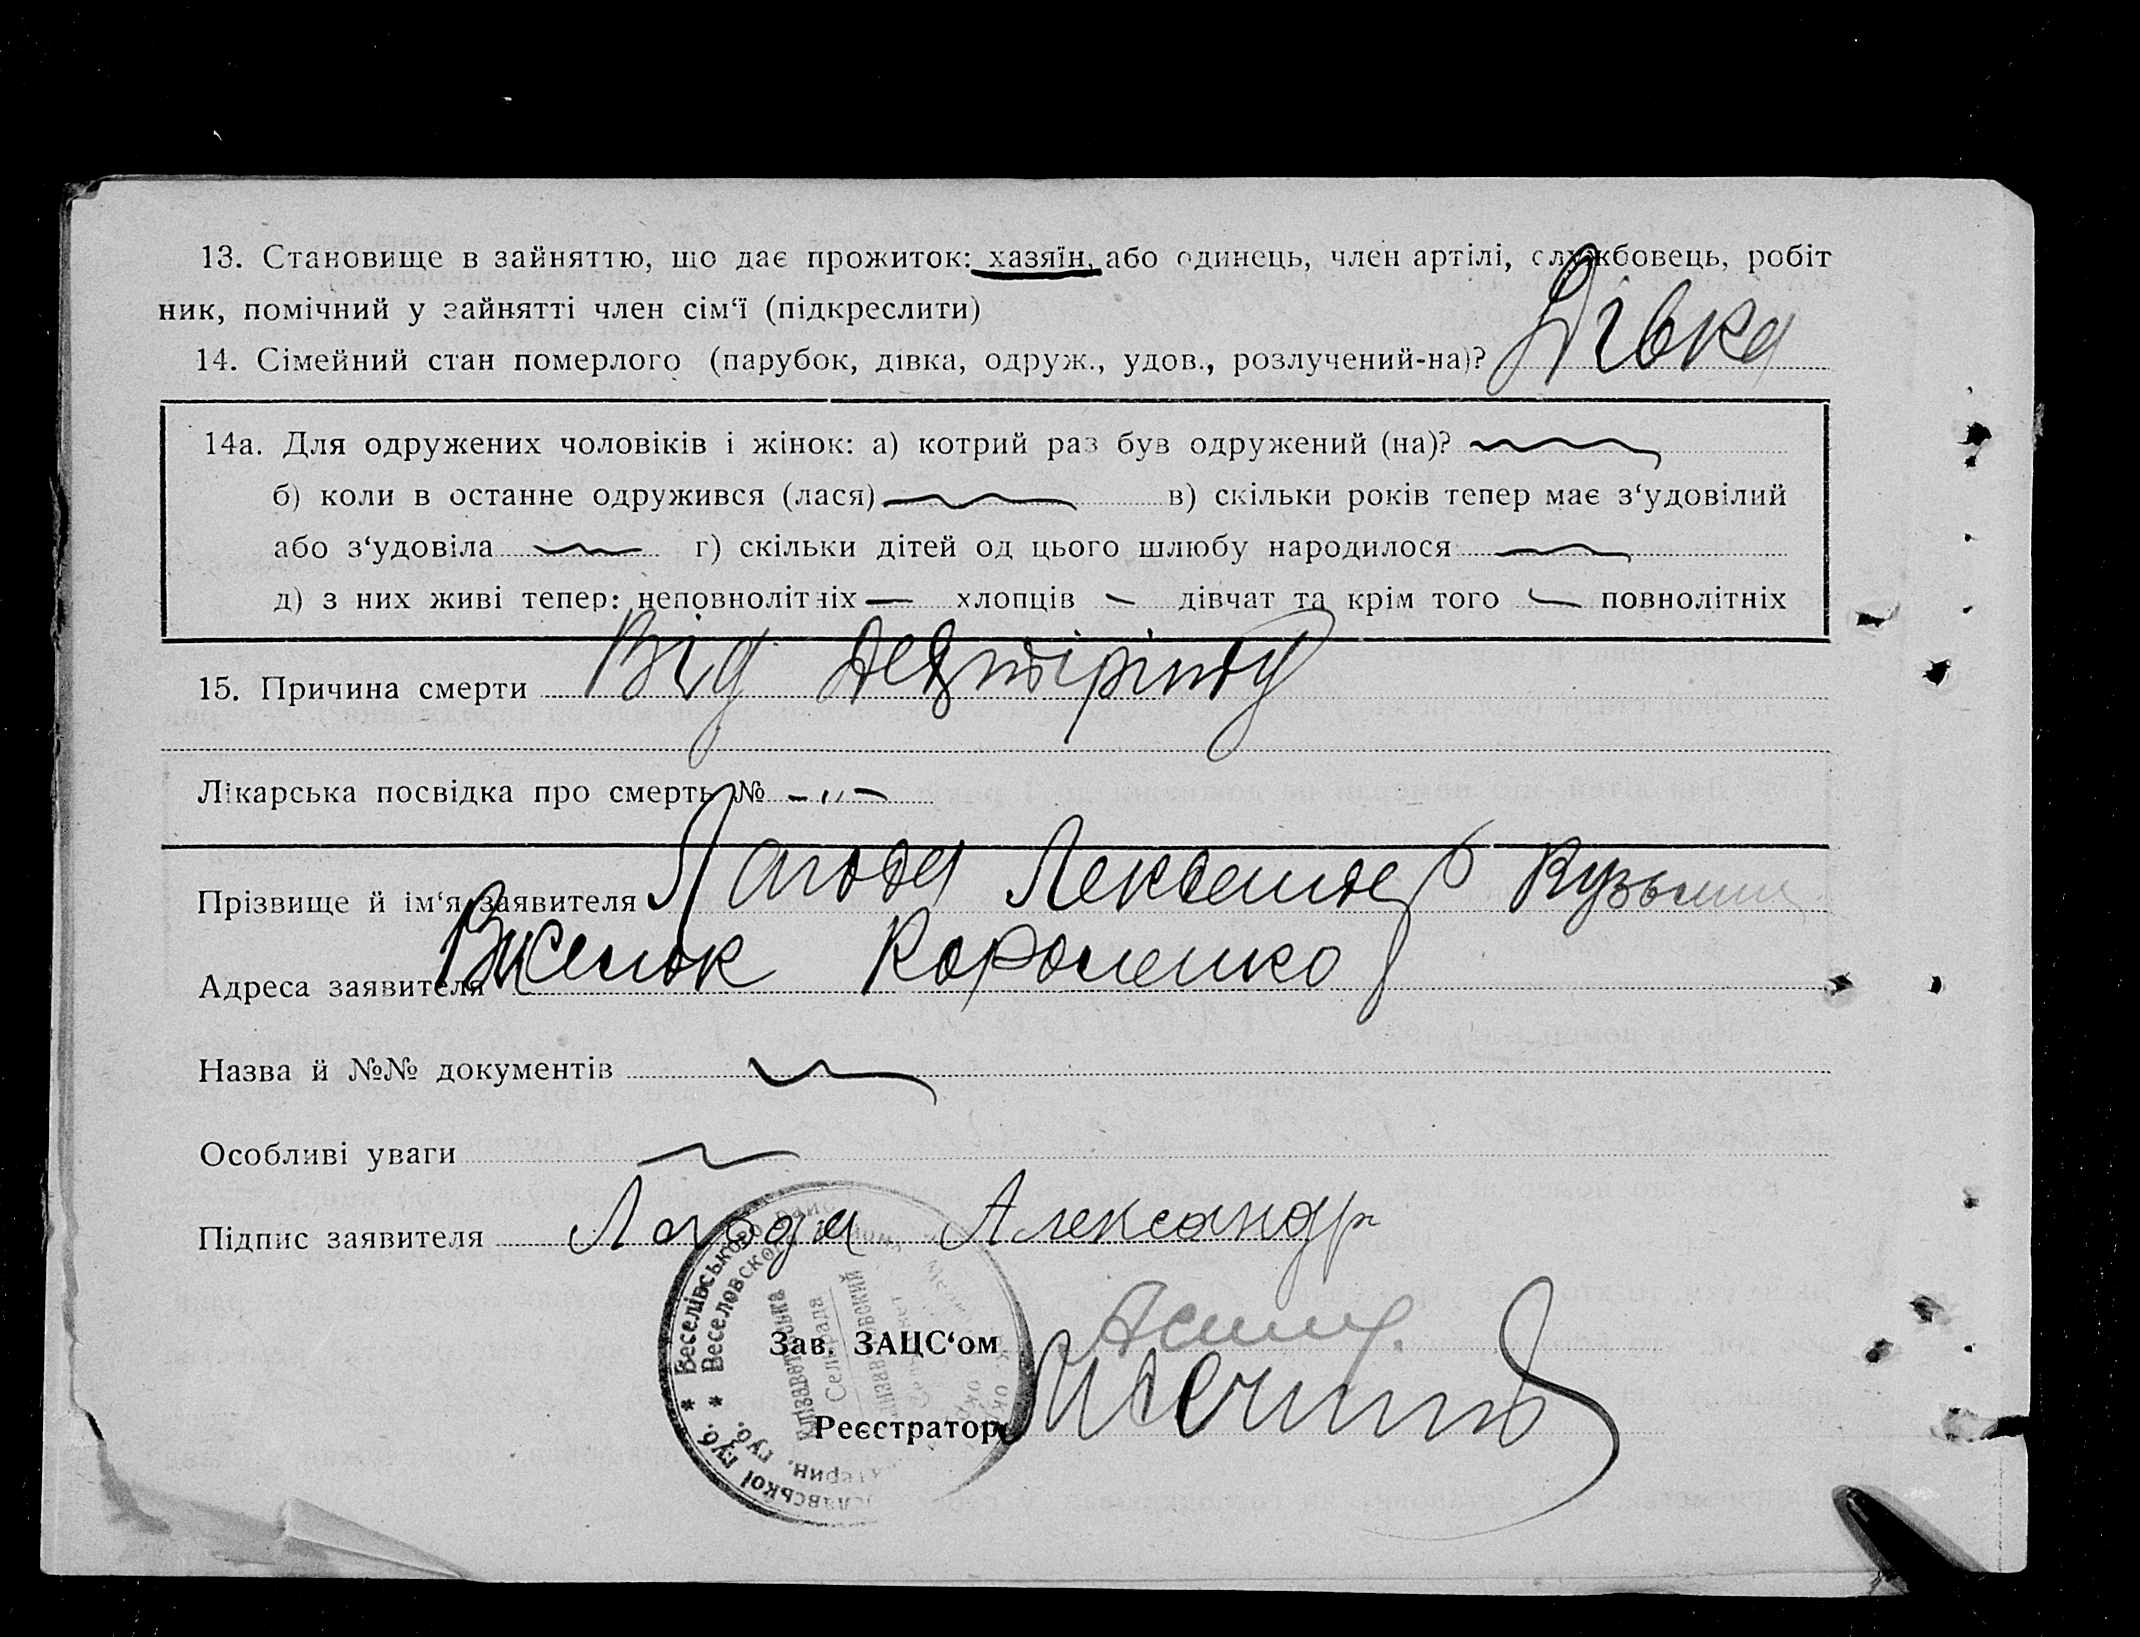 13. Становище в зайняттю, що дає прожиток: хазяїн, або одинець, член артілі, службовець, робіт
ник, помічний у зайнятті член сім‘ї (підкреслити)
14. Сімейний стан померлого (парубок, дівка, одруж., удов., розлучений-на)? Дівка
14а. Для одружених чоловіків і жінок: а) котрий раз був одружений (на)?
б) коли в останне одружився (лася) в) скільки років тепер має з‘удовілий
або з‘удовіла г) скільки дітей од цього шлюбу народилося
д) з них живі тепер: неповнолітніх — хлопців - дівчат та крім того - повнолітніх
15. Причина смерти Від
Лікарська посвідка про смерть № - „ -
Прізвище й ім‘я заявителя Лагода
Адреса заявителя
Назва й №№ документів
Особливі уваги
Підпис заявителя Лагода Александр
Зав. ЗАЦС‘ом
Реєстратор
Веселівського
Веселовского
Сельрада
губ.
губ.